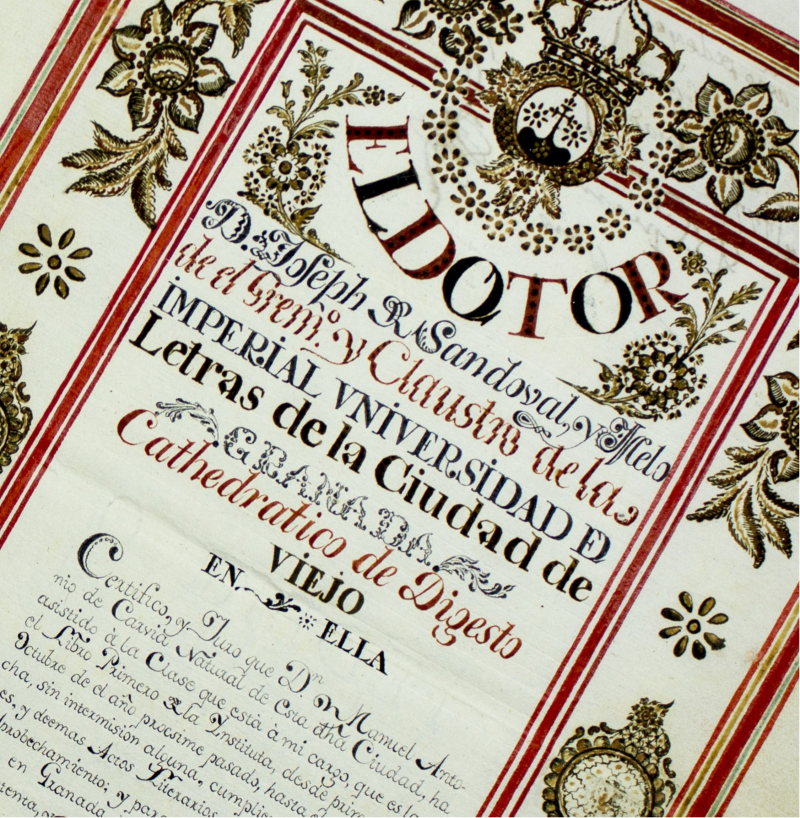 EL DOTOR
D. Joseph R. Sandoval, y Melo
de el Grem.º y Claustro de la
IMPERIAL VNIVERSIDAD D
Letras de la Ciudad de
GRANADA.
Cathedratico de Digesto
VIEJO
EN ELLA
Certifico, y Juro que Dⁿ Manuel Anto-
nio de Carvia Natural de esta dha Ciudad, ha
asistido à la Clase que està à mi cargo, que es la
el Libro Primero de la Instituta, desde prim
Octubre de el año procsime pasado, hasta
cha, sin intermision alguna, cumplie
es, y deemas Actos Literarios
probechamiento; y par
en Granada